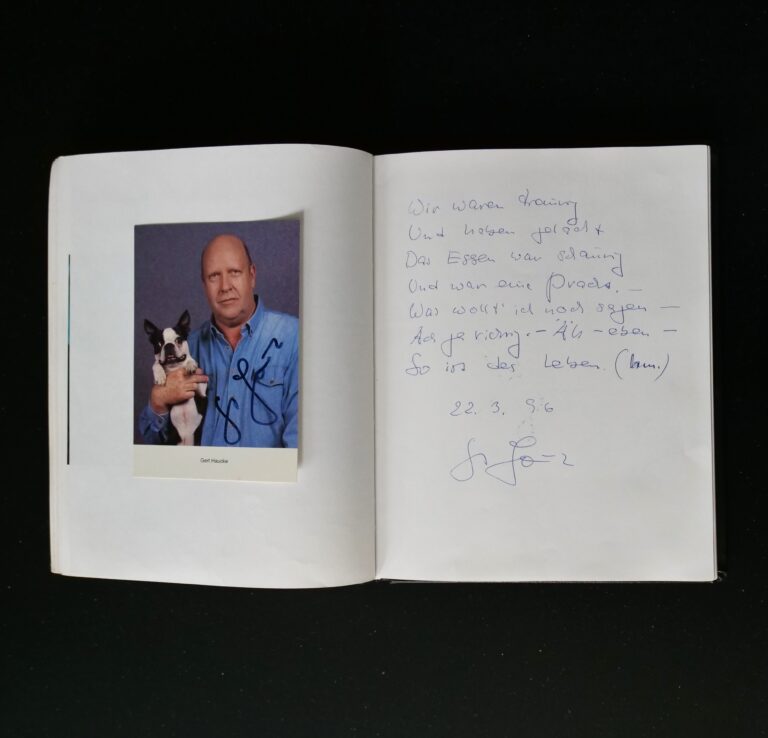 Gert Haucke
Wir waren traurig
Und haben gelacht
Das Essen war schaurig
Und war eine Pracht. —
Was wollt' ich noch sagen —
Ach ja richtig. – Äh – eben –
So ist das Leben.
22. 3. 96